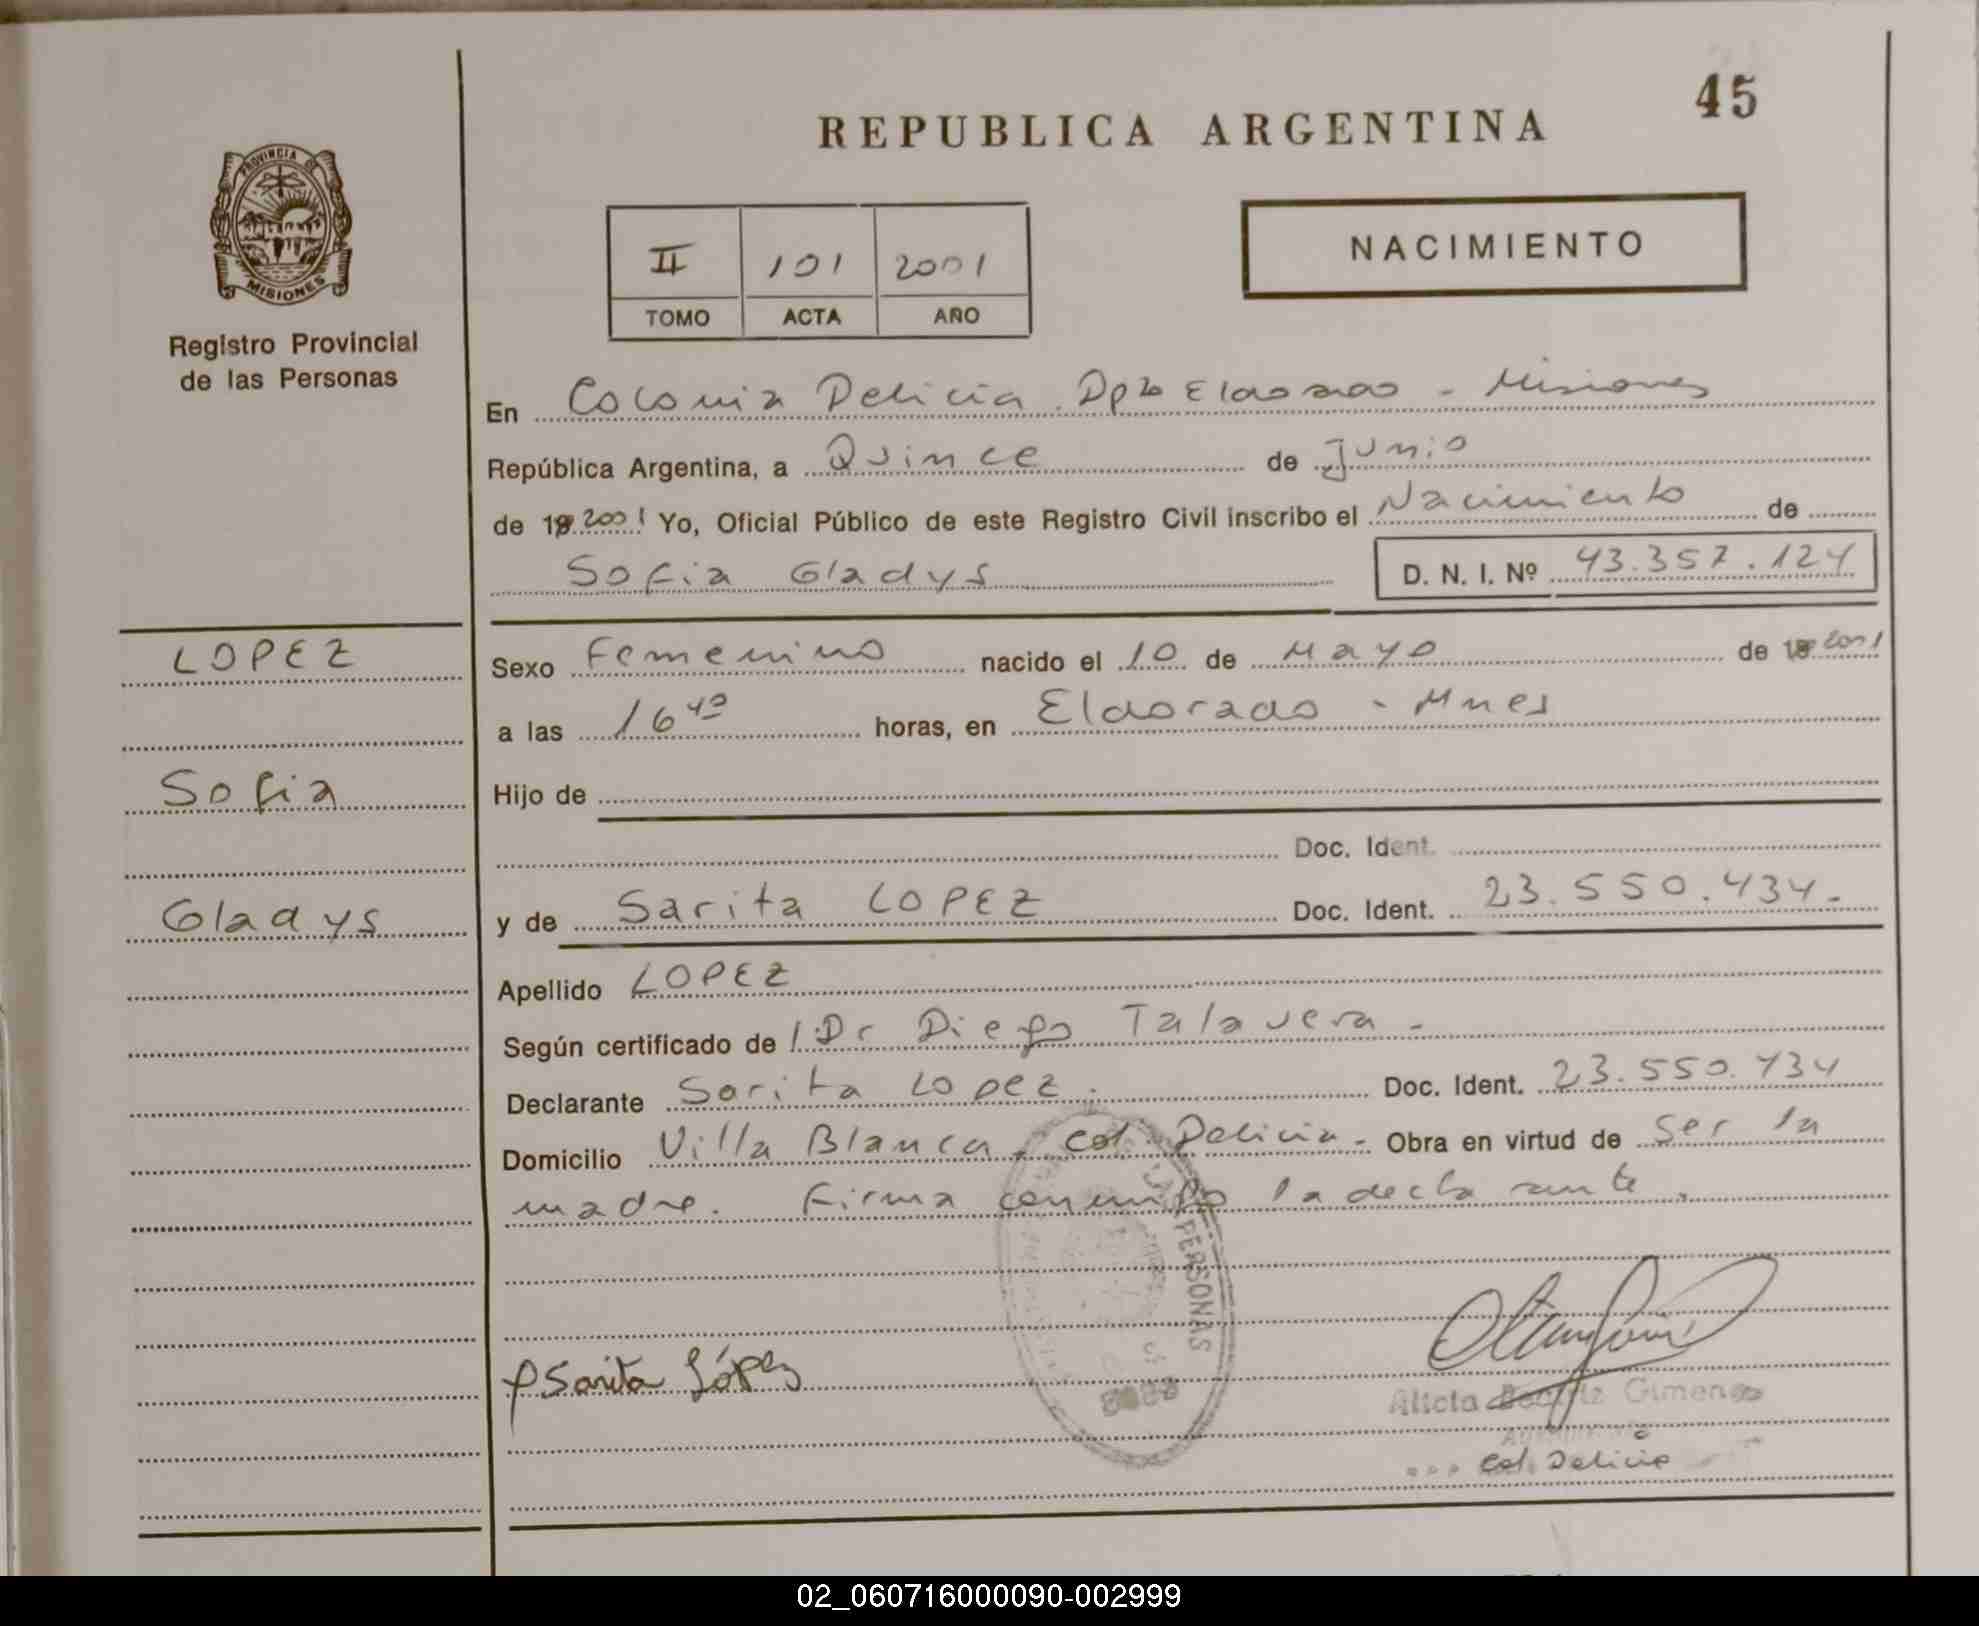 45
REPUBLICA ARGENTINA
PROVINCIA DE
MISIONES
Registro Provincial
de las Personas
II 101 2001
TOMO ACTA AÑO
NACIMIENTO
En Colonia Delicia Dpto Eldorado - Misiones
República Argentina, a Quince de Junio
de 19 2001 Yo, Oficial Público de este Registro Civil inscribo el Nacimiento de
Sofia Gladys D. N. I. Nº 43.357.124
LOPEZ
Sofia
Gladys
Sexo Femenino nacido el 10 de Mayo de 19 2001
a las 16 40 horas, en Eldorado - Mnes
Hijo de
Doc. Ident.
y de Sarita LOPEZ Doc. Ident. 23.550.434.-
Apellido LOPEZ
Según certificado de / Dr Diego Talavera -
Declarante Sarita Lopez. Doc. Ident. 23.550.434
Domicilio Villa Blanca, Col. Delicia - Obra en virtud de ser la
madre. Firma conmigo la declarante.
PERSONAS
Sarita López
Alicia Beatriz Gimenez
Col. Delicia
02_060716000090-002999